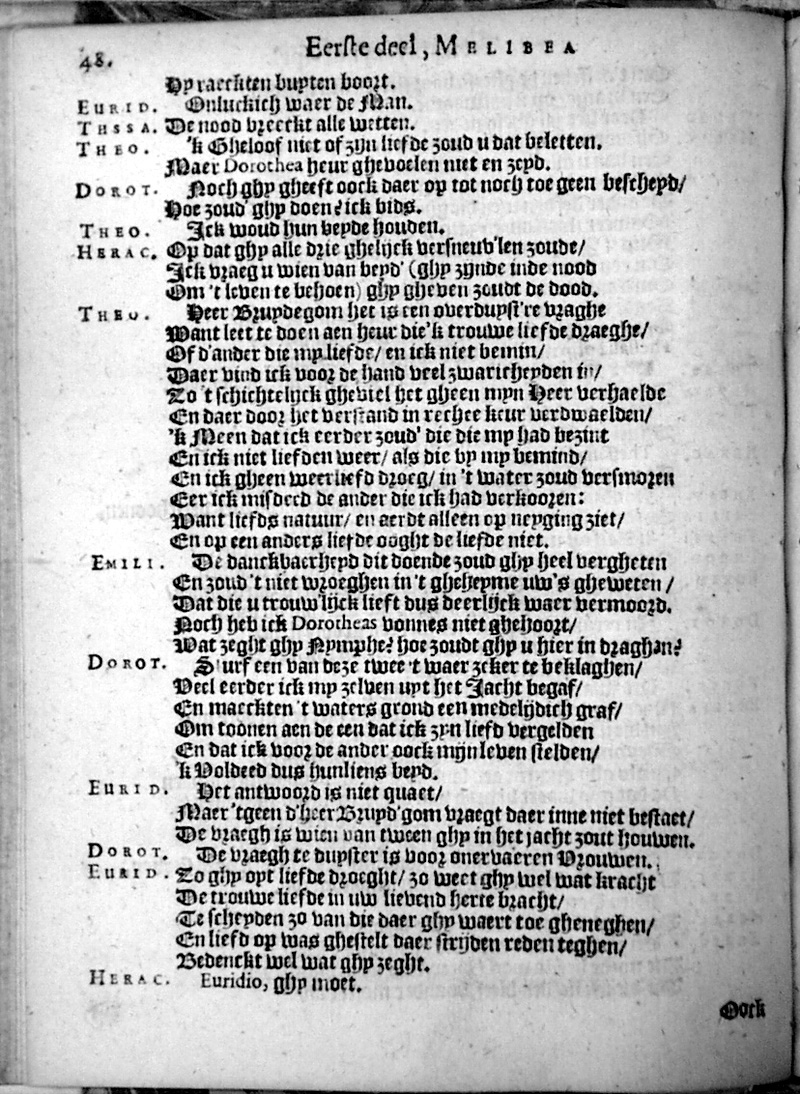 48.
Eerste deel, MELIBEA
Hy raeckten buyten boort.
EURID. Onluckich waer de Man.
THSSA. De nood breeckt alle wetten.
THEO. 'k Gheloof niet of zijn liefde zoud u dat beletten.
Maer Dorothea heur ghevoelen niet en zeyd.
DOROT. Noch ghy gheeft oock daer op tot noch toe geen bescheyd/
Hoe zoud' ghy doen? ick bids.
THEO. Ick woud hun beyde houden.
HERAC. Op dat ghy alle drie ghelijck versneuv'len zoude/
Ick vraeg u wien van beyd' (ghy zijnde inde nood
Om 't leven te behoen) ghy gheven zoudt de dood.
THEO. Heer Bruydegom het is een overduyst're vraghe
Want leet te doen aen heur die'k trouwe liefde draeghe/
Of d'ander die my liefde/ en ick niet bemin/
Daer vind ick voor de hand veel zwaricheyden in/
Zo 't schichtelijck gheviel het gheen mijn Heer verhaelde
En daer door het verstand in rechte keur verdwaelden/
'k Meen dat ick eerder zoud' die die my had bezint
En ick niet liefden weer/ als die by my bemind/
En ick gheen weerliefd droeg/ in 't water zoud versmoren
Eer ick misdeed de ander die ick had verkooren:
Want liefds natuur/ en aerdt alleen op neyging ziet/
En op een anders liefde ooght de liefde niet.
EMILI. De danckbaerheyd dit doende zoud ghy heel vergheten
En zoud 't niet wroeghen in 't gheheyme uw's gheweten/
Dat die u trouw'lijck lieft dus deerlijck waer vermoord.
Noch heb ick Dorotheas vonnes niet ghehoort/
Wat zeght ghy Nymphe? hoe zoudt ghy u hier in draghan?
DOROT. S'urf een van deze twee 't waer zeker te beklaghen/
Veel eerder ick my zelven uyt het Jacht begaf/
En maeckten 't waters grond een medelijdich graf/
Om toonen aen de een dat ick zyn liefd vergelden
En dat ick voor de ander oock mijn leven stelden/
'k Voldeed dus hunliens beyd.
EURID. Het antwoord is niet quaet/
Maer 'tgeen d'heer Bruyd'gom vraegt daer inne niet bestaet/
De vraegh is wien van tween ghy in het jacht zout houwen.
DOROT. De vraegh te duyster is voor onervaeren Vrouwen.
EURID. Zo ghy opt liefde droeght/ zo weet ghy wel wat kracht
De trouwe liefde in uw lievend herte bracht/
Te scheyden zo van die daer ghy waert toe gheneghen/
En liefd op was ghestelt daer strijden reden teghen/
Bedenckt wel wat ghy zeght.
HERAC. Euridio, ghy moet.
Oock